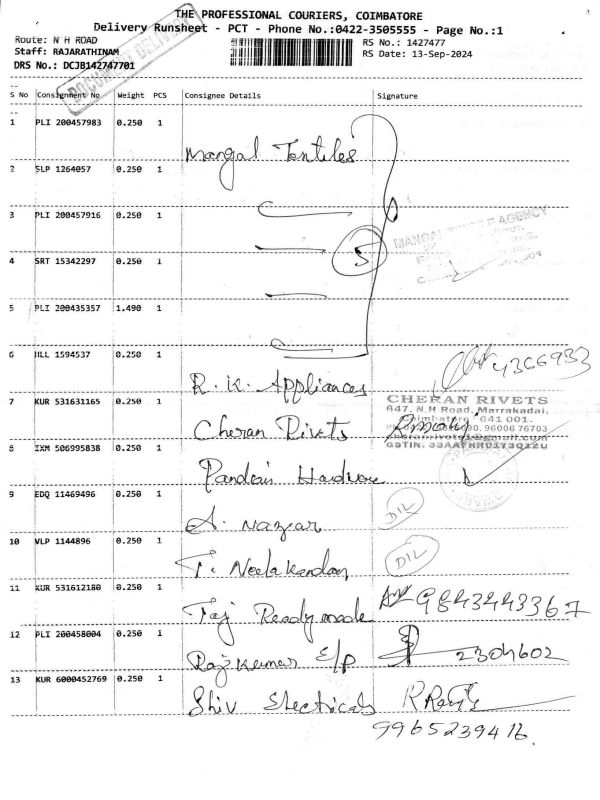 THE PROFESSIONAL COURIERS, COIMBATORE
Delivery Runsheet - PCT - Phone No.:0422-3505555 - Page No.:1
Route: N H ROAD RS No.: 1427477
Staff: RAJARATHINAM RS Date: 13-Sep-2024
DRS No.: DCJB142747701
S No Consignment No Weight PCS Consignee Details Signature
1 PLI 200457983 0.250 1 Mangal Textiles
2 SLP 1264057 0.250 1
3 PLI 200457916 0.250 1
4 SRT 15342297 0.250 1 5
5 PLI 200435357 1.490 1
6 HLL 1594537 0.250 1 R. K. Appliances 4366933
7 KUR 531631165 0.250 1 Cheran Rivets
CHERAN RIVETS
647, N.H Road, Marrakadai,
Coimbatore 641 001.
96006 76703
8 IXM 506995838 0.250 1 Pandian Hardware
9 EDQ 11469496 0.250 1 A. Nazar D/L
10 VLP 1144896 0.250 1 T. Neelakandan D/L
11 KUR 531612180 0.250 1 Taj Readymade 9843443367
12 PLI 200458004 0.250 1 Rajkumar E/P 2304602
13 KUR 6000452769 0.250 1 Shiv Electricals
9965239416.